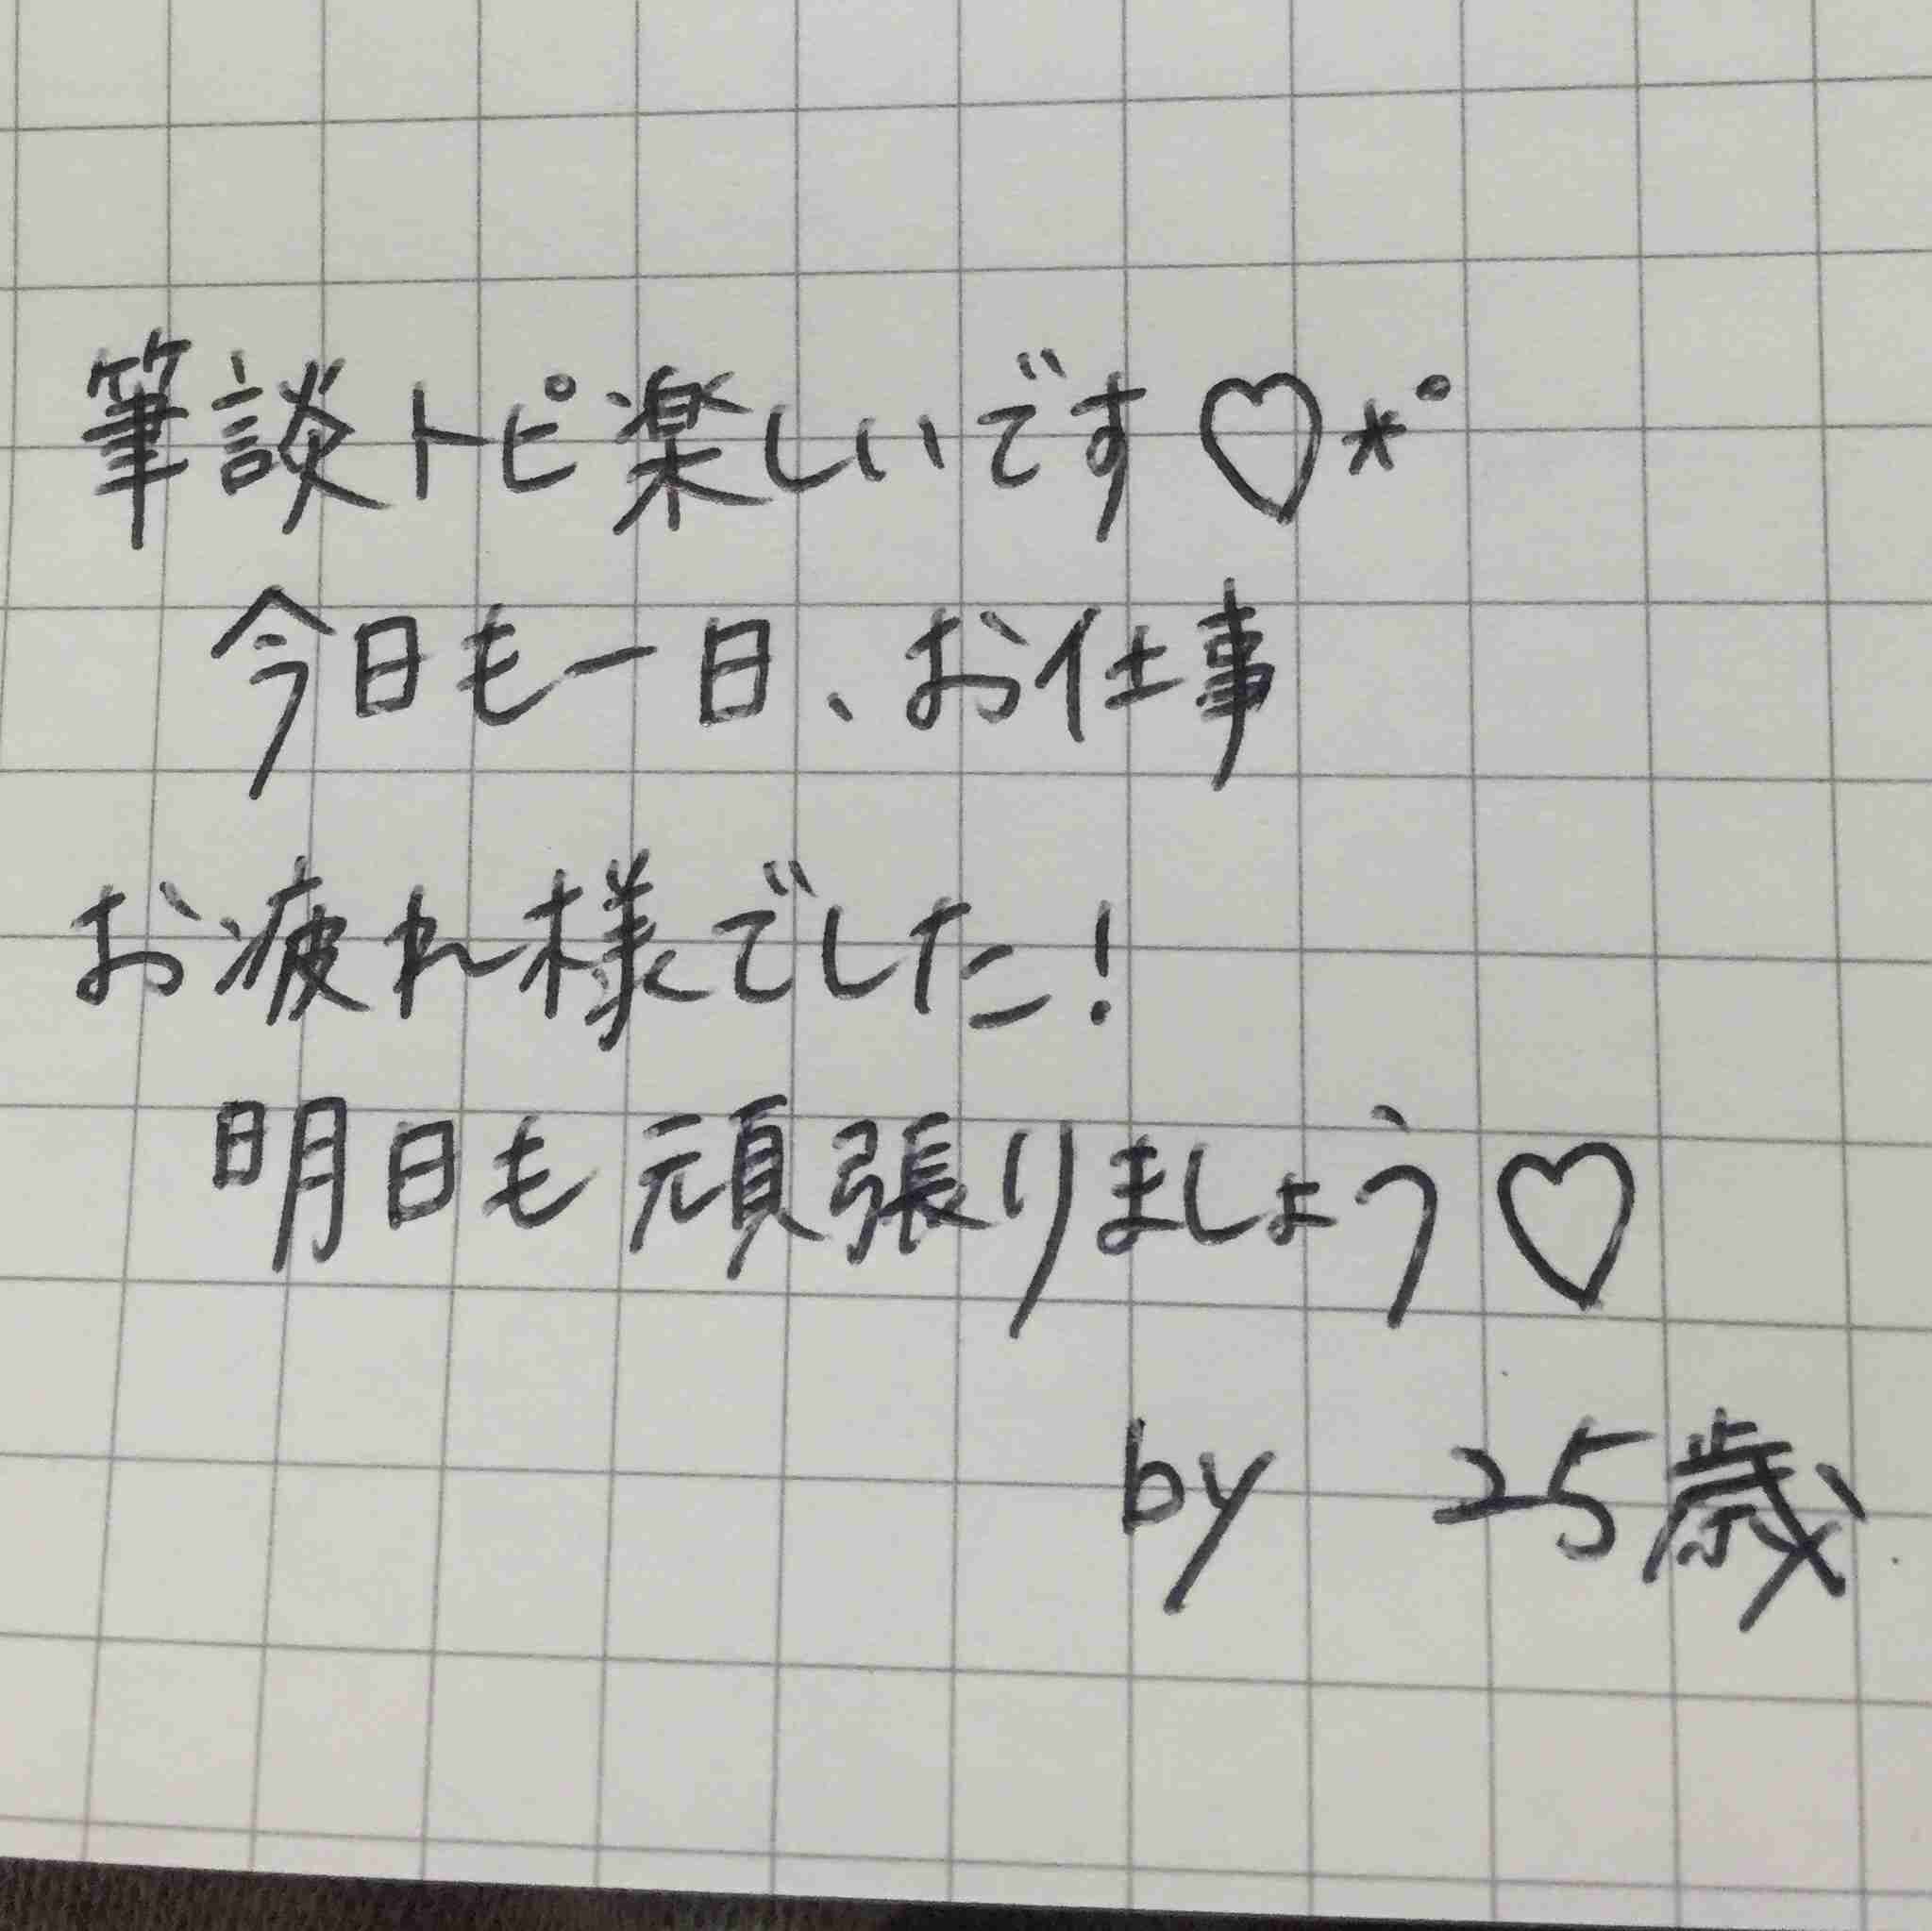 筆談トピ楽しいです♡*°
今日も一日、お仕事
お疲れ様でした!
明日も頑張りましょう♡
by 25歳